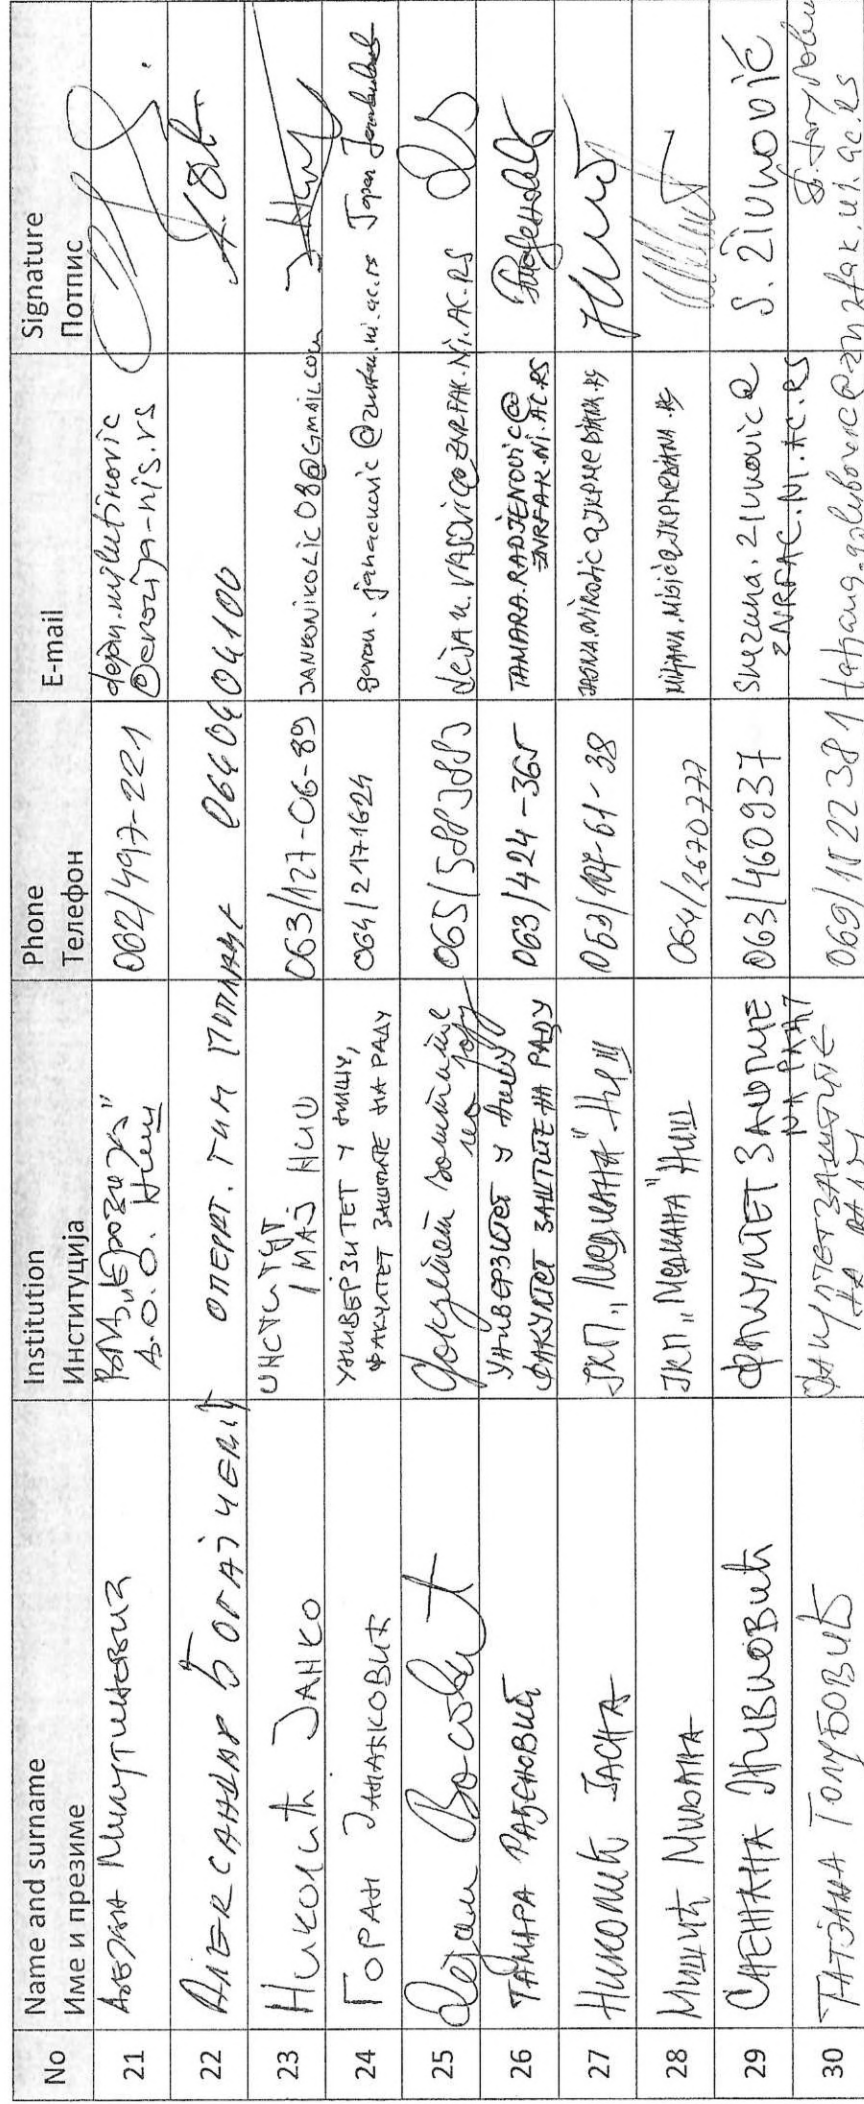 No
Name and surname
Име и презиме
Institution
Институција
Phone
Телефон
E-mail
Signature
Потпис
21
Милутиновић
Д.О.О. Ниш
062/497-221
dejan.milutinovic
@erozija-nis.rs
22
Александар Богајчевић
ОПЕРАТ. ТИМ
23
Николић Јанко
ИНСТИТУТ
1 МАЈ НИШ
063/127-06-89
JANKONIKOLIC08@Gmail.com
24
Горан Јанаћковић
УНИВЕРЗИТЕТ У НИШУ,
ФАКУЛТЕТ ЗАШТИТЕ НА РАДУ
064/2171624
goran.janackovic@znrfak.ni.ac.rs
25
Dejan Васовић
Факултет заштите
на раду
dejan.VASOVIC@ZNRFAK.Ni.AC.RS
26
ТАМАРА РАЂЕНОВИЋ
УНИВЕРЗИТЕТ у Нишу
ФАКУЛТЕТ ЗАШТИТЕ НА РАДУ
063/424-365
TAMARA.RADJENOVIC@
ZNRFAK.NI.AC.RS
27
Николић ЈАСНА
ЈКП „Медиана" Ниш
28
Мишић Миљана
ЈКП „Медиана" Ниш
064/2670777
29
СНЕЖАНА ЖИВКОВИЋ
ФАКУЛТЕТ ЗАШТИТЕ
НА РАДУ
063/460937
Snezana.zivkovic@
ZNRFAC.NI.AC.RS
S. Živković
30
ТАТЈАНА ГОЛУБОВИЋ
ФАКУЛТЕТ ЗАШТИТЕ
НА РАДУ
069/1522381
tatjana.golubovic@znrfak.ni.ac.rs